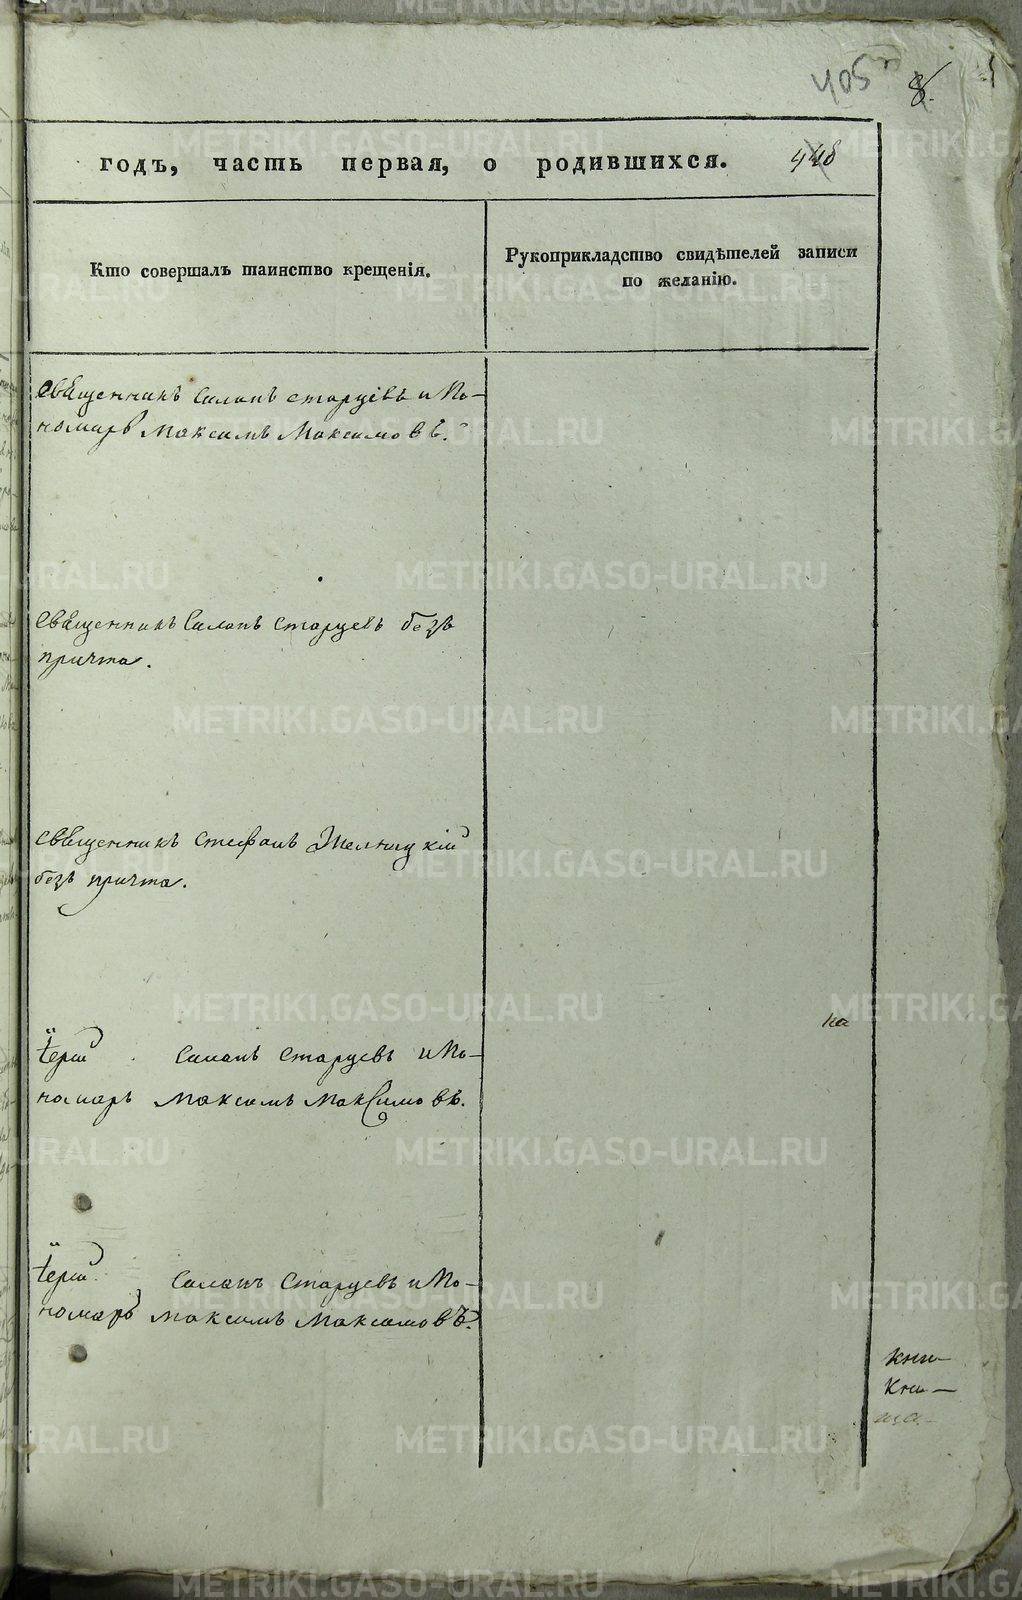 405
8.
годъ, часть первая, о родившихся.
Кто совершалъ таинство крещенія.
Рукоприкладство свидѣтелей записи
по желанію.
священникъ Симонъ старцевъ и По-
номарь Максимъ Максимовъ.
священникъ Симонъ старцевъ безъ
причта.
священникъ Стефанъ
безъ причта.
Іерей Симонъ старцевъ и По-
номарь Максимъ Максимовъ.
Іерей Симонъ Старцевъ и По-
номарь Максимъ Максимовъ.
ка
кни-
Кни-
METRIKI.GASO-URAL.RU